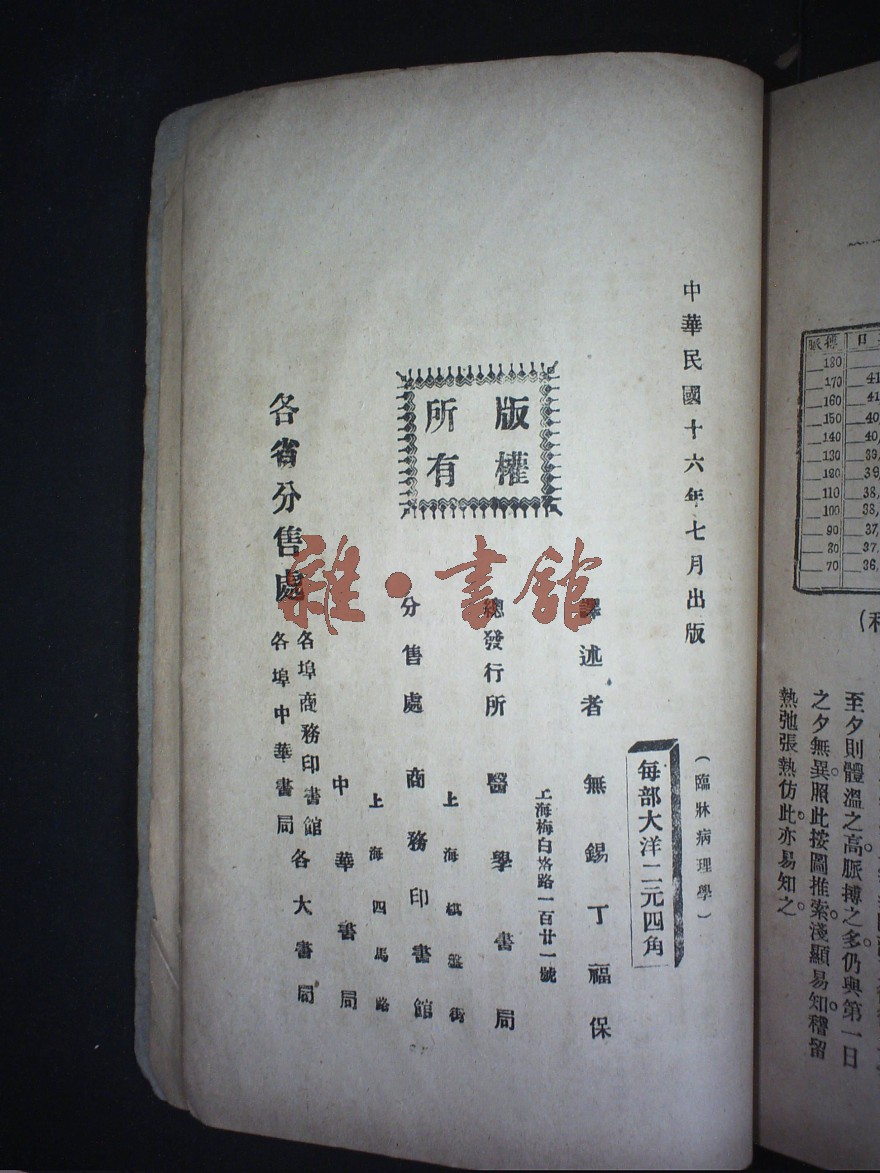 中華民國十六年七月出版
(臨牀病理學)
每部大洋二元四角
版權
所有
譯述者 無錫丁福保
上海梅白格路一百廿一號
總發行所 醫學書局
上海棋盤街
分售處 商務印書館
上海四馬路
中華書局
各省分售處
各埠商務印書館
各埠中華書局
各大書局
雜·書館
脈傅
180
170
160
150
140
130
120
110
100
90
80
70
日
41
41
40,
40,
39,
39,
38,
38,
37,
37,
36,
至夕則體溫之高。脈搏之多。仍與第一日
之夕無異。照此按圖推索。淺顯易知。稽留
熱弛張熱仿此。亦易知之。